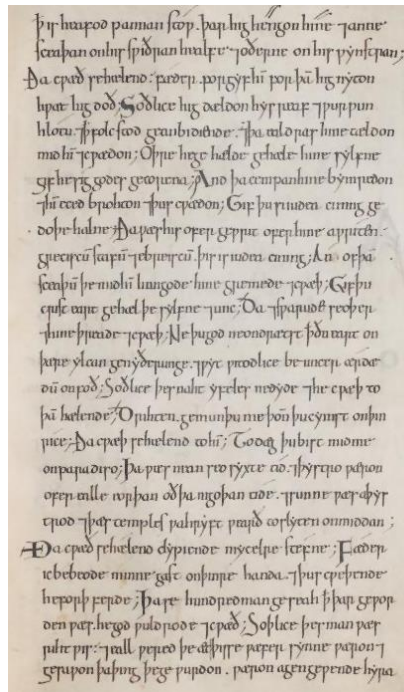 þ is heafod pannan stop. þar hig hengon hine ⁊anne
sceaþan on his sƿiðran healfe ⁊oðerne on his ƿynstran;
Ða cƿæð se hælend. fæder. forgyf hī for þā hig nyton
hƿæt hig doð; Soðlice hig dældon hys reaf ⁊ƿurpun
hlotu. ⁊þ folc stod geanbidiende. ⁊þa ealdras hine tældon
mid hī ⁊cƿædon; Oþre he gehælde gehæle hine sylfne
gif he sig godes gecorena; And þa cempan hine bysmredon
⁊hī eced brohton ⁊þus cƿædon; Gif þu si iudea cining ge
do þe halne; Ða ƿæs his ofergeƿrit ofer hine aƿriten.
greciscū stafū ⁊ebreiscū. þis is iudea cining; An of þā
sceaþū þe mid hī hangode hine gremede ⁊cƿæþ; Gif þu
crist eart gehæl þe sylfne ⁊unc; Ða ⁊sƿarude se oþer
⁊hine þreade ⁊cƿæþ; Ne þu god ne ondrætst þ ðu eart on
þære ylcan genyðerunge. ⁊ƿyt ƿitodlice be uncer ærdæ
dū onfoð; Soðlice þes naht yfeles ne dyde ⁊he cƿæþ to
þā hælende; Drihten. gemun þu me þōn þu cymst on þin
rice; Ða cƿæþ se hælend to hī; To dæg þu bist mid me
on paradiso; Þa ƿæs nean seo syxte tid. ⁊þystro ƿæron
ofer ealle eorþan oð þa nigoþan tide. ⁊sunne ƿæs aþys
trod ⁊þæs temples ƿahryft ƿearð tosliten on middan;
Ða cƿæð se hælend clypiende mycelre stefne; Fæder
ic bebeode minne gast on þinre handa. ⁊þus cƿeþende
he forþferde; Þa se hundredman geseah þ þar geƿor
den ƿæs. he god ƿuldrode ⁊cƿæð; Soþlice þes man ƿæs
rihtƿis. ⁊eall ƿered þe æt þisse ƿæfersynne ƿæron ⁊
gesaƿon þa þing þe geƿurdon. ƿæron agen geƿende hyra